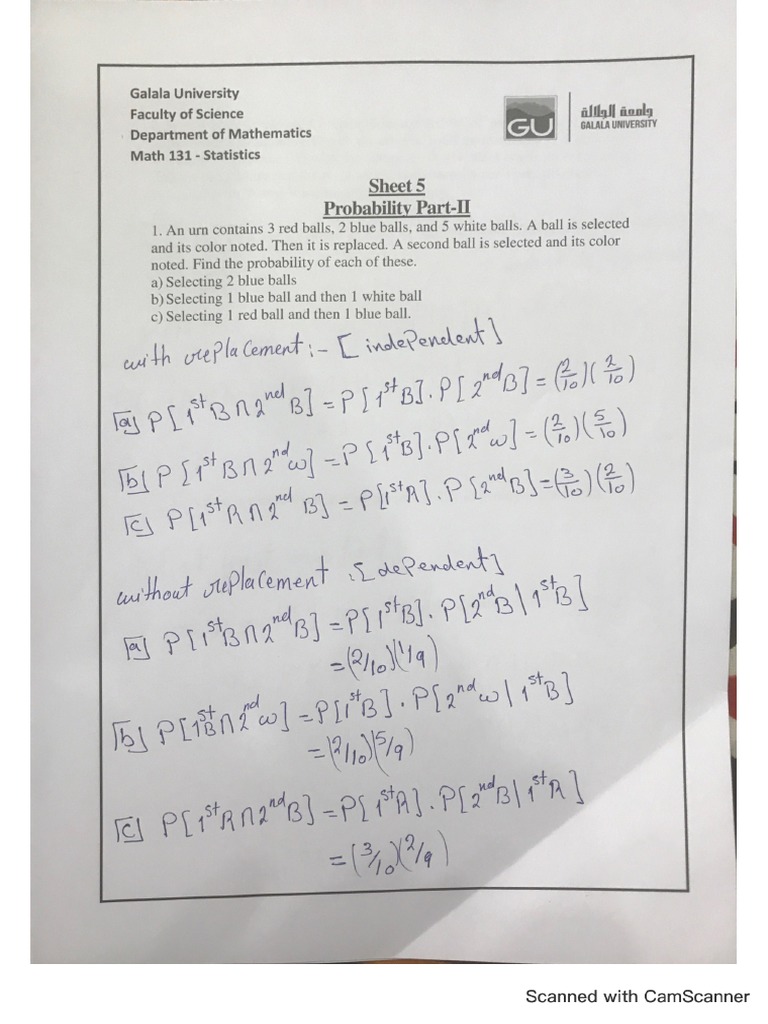 Galala University
Faculty of Science
Department of Mathematics
Math 131 - Statistics
GU
جامعة الجلالة
GALALA UNIVERSITY
Sheet 5
Probability Part-II
1. An urn contains 3 red balls, 2 blue balls, and 5 white balls. A ball is selected
and its color noted. Then it is replaced. A second ball is selected and its color
noted. Find the probability of each of these.
a) Selecting 2 blue balls
b) Selecting 1 blue ball and then 1 white ball
c) Selecting 1 red ball and then 1 blue ball.
with replacement :- [independent]
[a] P[1st B ∩ 2nd B] = P[1st B] . P[2nd B] = (2/10)(2/10)
[b] P[1st B ∩ 2nd w] = P[1st B] . P[2nd w] = (2/10)(5/10)
[c] P[1st R ∩ 2nd B] = P[1st R] . P[2nd B] = (3/10)(2/10)
without replacement :[dependent]
[a] P[1st B ∩ 2nd B] = P[1st B] . P[2nd B | 1st B]
= (2/10)(1/9)
[b] P[1st B ∩ 2nd w] = P[1st B] . P[2nd w | 1st B]
= (2/10)(5/9)
[c] P[1st R ∩ 2nd B] = P[1st R] . P[2nd B | 1st R]
= (3/10)(2/9)
Scanned with CamScanner